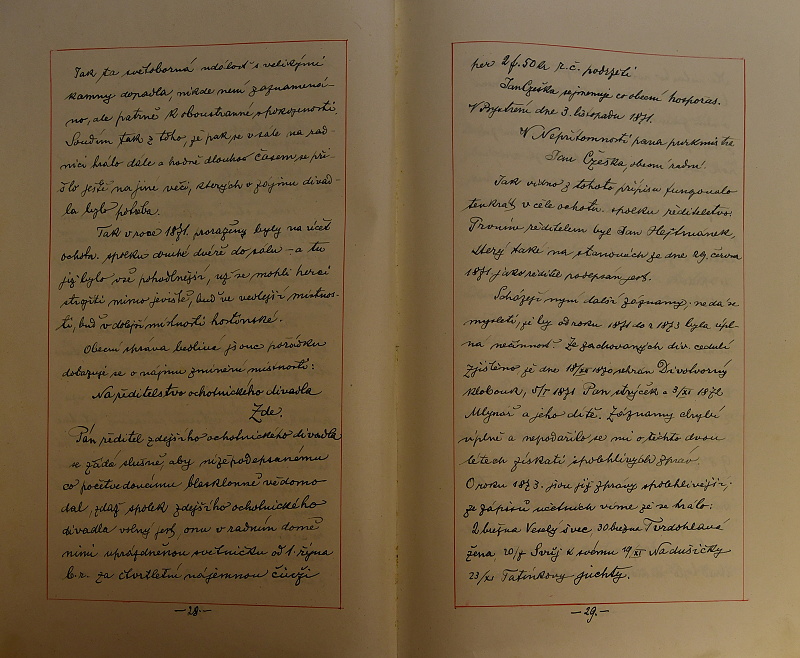 Tak ta světoborná událost s velikými
kamny dopadla, nikde není zaznamená-
no, ale patrně k oboustranné spokojenosti.
Soudím tak z toho, že pak se v sále na rad-
nici hrálo dále a hodně dlouho. Časem se při-
šlo ještě na jiné věci, kterých v zájmu divad-
la bylo potřeba.
Tak v roce 1871. proraženy byly na účet
ochotn. spolku druhé dvéře do sálu – a tu
již bylo vše pohodlnější, už se mohli herci
strojiti mimo jeviště, buď ve vedlejší místnos-
ti, buď v dolejší místnosti hostinské.
Obecní správa bedlivá jsouc pořádku
dokazuje se o nájmu zmíněné místnosti:
Na ředitelstvo ochotnického divadla
Zde.
Pan ředitel zdejšího ochotnického divadla
se žádá slušně, aby nížepodepsanému
co početvedoucímu blasklonně vědomo
dal, zdaž spolek zdejšího ochotnického
divadla volný jest, onu v radním domě
nimi uprázdněnou světničku od 1. října
b.r. za čtvrtletní nájemnou činži
— 28. —
per 2 f. 50 kr r. č. podržeti
Jan Czeska co obecní hospodář.
V Bystrém dne 3. listopadu 1871.
V Nepřítomnosti pana purkmistra
Jan Czeska, obecní radní.
Jak vidno z tohoto přípisu fungovalo
tenkrát v čele ochotn. spolku ředitelstvo.
Prvním ředitelem byl Jan Hejtmanek,
který také na stanovách ze dne 29. června
1871 jako ředitel podepsán jest.
Scházejí nyní další záznamy; nedá se
mysleti, že by od roku 1871 do r. 1873 byla úpl-
ná nečinnost. Ze zachovaných div. cedulí
zjištěno, že dne 18/XII 1870 sehrán Divotvorný
klobouk, 5/I 1871 Pan strýček a 3/XI 1872
Mlynář a jeho dítě. Záznamy chybí
úplně a nepodařilo se mi o těchto dvou
létech získati spolehlivých zpráv.
O roku 1873. jsou již zprávy spolehlivější;
ze zápisů účetních víme že se hrálo:
2. března Veselý švec, 30. března Tvrdohlavá
žena, 20/7 Svůj k svému 19/XI Nadušičky
23/XI Tatínkovy juchty.
— 29. —